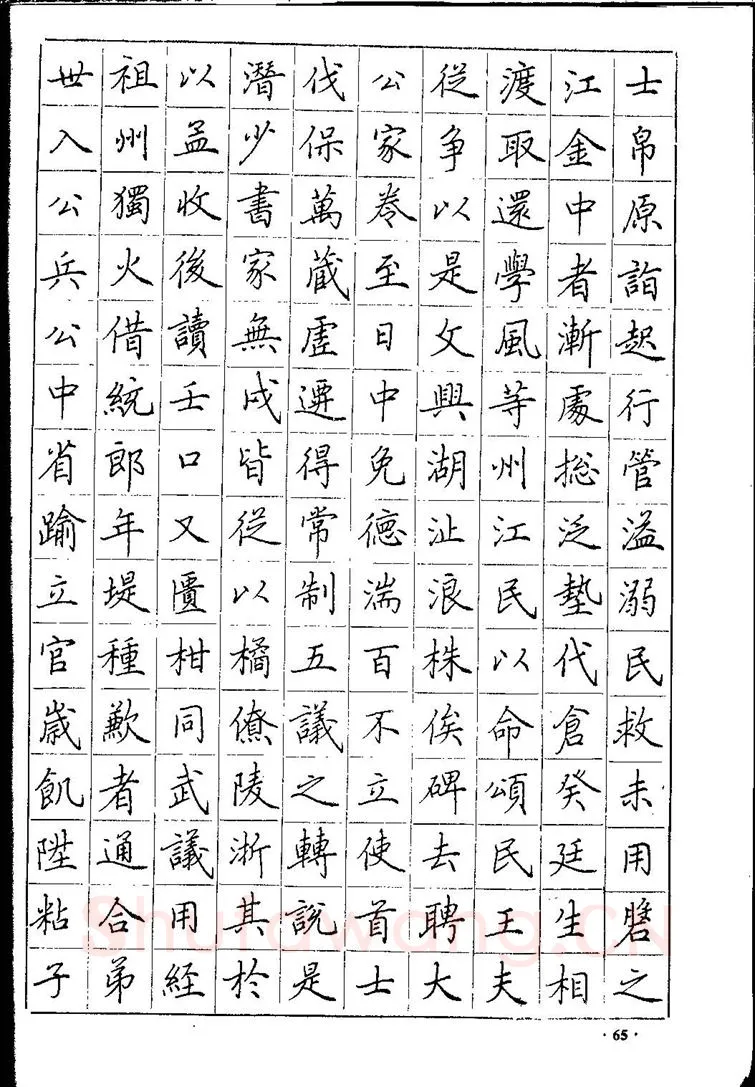 世祖以潛伐公從渡江士
入州孟少保家爭取金帛
公獨收書萬卷以還中原
兵火後家藏至是學者詣
公借讀無虛日文風漸起
中統壬戌遷中興等處行
省郎口皆得免湖州總管
踰年又從常德沚江泛溢
立堤匱以制湍浪民墊溺
官種柑橘五百株以代民
歲歉同僚議不俟命倉救
飢者武陵之立碑頌癸未
陞通議浙轉使去民廷用
粘合用其說首聘王生
子弟經於是士大夫相之
·65·
Shufawang.CN